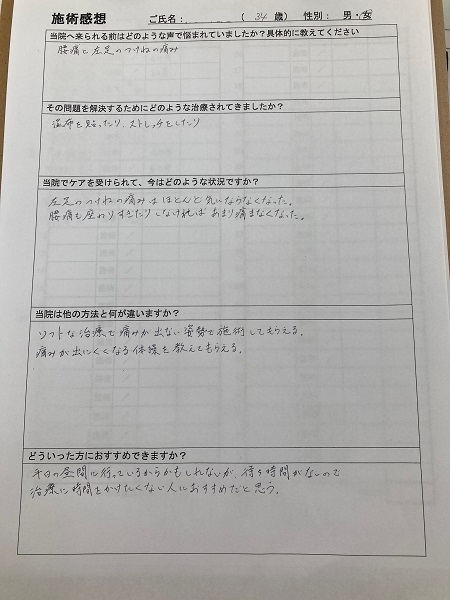 施術感想 ご氏名: (34 歳) 性別: 男・女
当院へ来られる前はどのような声で悩まれていましたか?具体的に教えてください
腰痛と左足のつけねの痛み
その問題を解決するためにどのような治療されてきましたか?
湿布を貼ったり、ストレッチをしたり
当院でケアを受けられて、今はどのような状況ですか?
左足のつけねの痛みはほとんど気にならなくなった。
腰痛も座わりすぎたりしなければあまり痛まなくなった。
当院は他の方法と何が違いますか?
ソフトな治療で痛みが出ない姿勢で施術してもらえる。
痛みが出にくくなる体操を教えてもらえる。
どういった方におすすめできますか?
平日の昼間に行っているからかもしれないが、待ち時間がないので
治療に時間をかけたくない人におすすめだと思う。